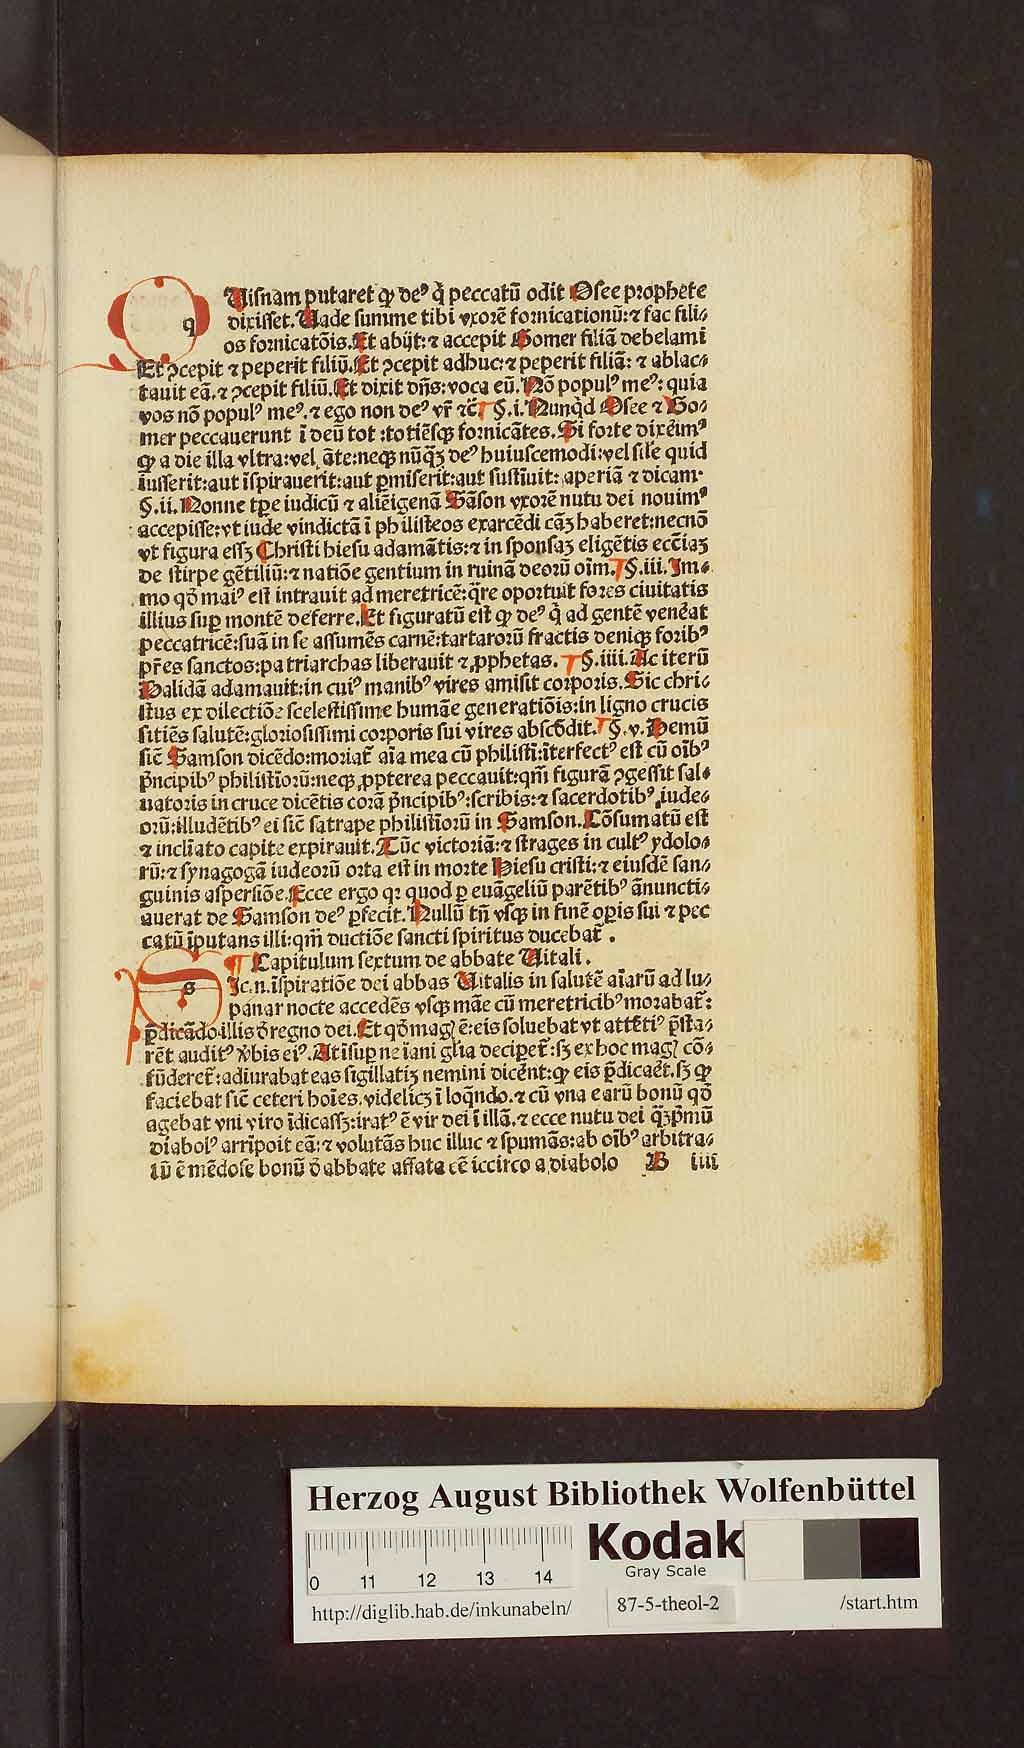 q Uisnam putaret ꝙ deꝰ q̇ peccatū odit Osee prophete
dixisset. Uade summe tibi vxorē fornicationū: ⁊ fac fili⸗
os fornicatōis. Et abijt: ⁊ accepit Gomer filiā debelami
Et ꝯcepit ⁊ peperit filiū. Et ꝯcepit adhuc: ⁊ peperit filiā: ⁊ ablac⸗
tauit eā. ⁊ ꝯcepit filiū. Et dixit dn̄s: voca eū. Nō populꝰ meꝰ: quia
vos nō populꝰ meꝰ. ⁊ ego non deꝰ vr̄ ⁊c̄ §. i. Nunq̇d Osee ⁊ Go⸗
mer peccauerunt ī deū tot: totiēsꝙ fornicātes. Si forte dixeimꝰ
ꝙ a die illa vltra: vel āte: neqꝫ nūq̄ꝫ deꝰ huiuscemodi: vel sil'e quid
iusserit: aut īspirauerit: aut ꝑmiserit: aut sustīuit: aperiā ⁊ dicam.
§. ii. Nonne tꝑe iudicū ⁊ aliēigenā Sāson vxorē nutu dei nouimꝰ
accepisse: vt iude vindictā ī philisteos exarcēdi cāꝫ haberet: necnō
vt figura essꝫ Christi hiesu adamātis: ⁊ in sponsaꝫ eligētis ecc̄iaꝫ
de stirpe gētiliū: ⁊ natiōe gentium in ruinā deorū oīm. §. iii. Im⸗
mo qō maiꝰ est intrauit ad meretricē: q̄re oportuit fores ciuitatis
illius suꝑ montē deferre. Et figuratū est ꝙ deꝰ q̇ ad gentē venēat
peccatricē: suā in se assumēs carnē: tartarorū fractis deniqꝫ foribꝰ
pr̄es sanctos: patriarchas liberauit ⁊ ꝓphetas. §. iiii. Ac iterū
Dalidā adamauit: in cuiꝰ manibꝰ vires amisit corporis. Sic chri⸗
stus ex dilectiōe scelestissime humāe generatiōis: in ligno crucis
sitiēs salutē: gloriosissimi corporis sui vires abscōdit. §. v. Demū
sic̄ Samson dicēdo: moriat̄ aīa mea cū philistī: īterfectꝰ est cū oībꝰ
pͥncipibꝰ philistiorū: neqꝫ ꝓpterea peccauit: qm̄ figurā ꝯgessit sal⸗
uatoris in cruce dicētis corā pͥncipibꝰ: scribis: ⁊ sacerdotibꝰ iude⸗
orū: illudētibꝰ ei sic̄ satrape philistīorū in Samson. Cōsumatū est
⁊ incliato capite expirauit. Tūc victoriā: ⁊ strages in cultꝰ ydolo⸗
rū: ⁊ synagogā iudeorū orta est in morte Hiesu cristi: ⁊ eiusdē san⸗
guinis aspersiōe. Ecce ergo qꝛ quod ꝑ euāgeliū parētibꝰ ānuncti⸗
auerat de Samson deꝰ ꝑfecit. Nullū tn̄ vsqꝫ in finē oꝑis sui ⁊ pec
catū īputans illi: qm̄ ductiōe sancti spiritus ducebat̄.
Capitulum sextum de abbate Uitali.
s Ic. n. īspiratiōe dei abbas Uitalis in salutē aīarū ad lu⸗
panar nocte accedēs vsqꝫ māe cū meretricibꝰ morabat̄:
p̄dicādo illis ō regno dei. Et qō mag̛ ē: eis soluebat vt attētiꝰ p̄sta⸗
rēt auditꝰ v̄bis eiꝰ. At īsuꝑ ne īani gl̄ia deciꝑet̄: sꝫ ex hoc mag̛ cō⸗
fūderet̄: adiurabat eas sigillatiꝫ nemini dicēnt: ꝙ eis p̄dicaēt. sꝫ ꝙ
faciebat sic̄ ceteri hoīes. videlicꝫ ī loq̄ndo. ⁊ cū vna earū bonū qō
agebat vni viro īdicassꝫ: iratꝰ ē vir dei ī illā. ⁊ ecce nutu dei q̄ꝫpͥmū
diabolꝰ arripoit eā: ⁊ volutās huc illuc ⁊ spumās: ab oībꝰ arbitra⸗
iū ē mēdose bonū ō abbate affata eē iccirco a diabolo B iiii
Herzog August Bibliothek Wolfenbüttel
0 11 12 13 14
Kodak
Gray Scale
http://diglib.hab.de/inkunabeln/ 87-5-theol-2 /start.htm